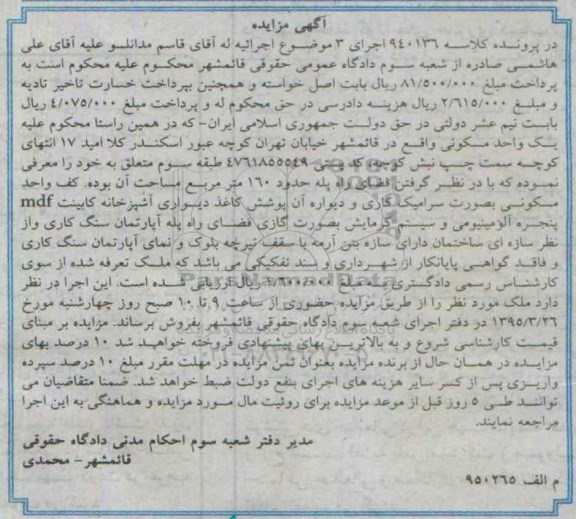 آگهی مزایده
در پرونده کلاسه ۹۴۰۱۳۶ اجرای ۳ موضوع اجرائیه له آقای قاسم مدانلو علیه آقای علی
هاشمی صادره از شعبه سوم دادگاه عمومی حقوقی قائمشهر محکوم علیه محکوم است به
پرداخت مبلغ ۸۱/۵۰۰/۰۰۰ ریال بابت اصل خواسته و همچنین بپرداخت خسارت تاخیر تادیه
و مبلغ ۲/۶۱۵/۰۰۰ ریال هزینه دادرسی در حق محکوم له و پرداخت مبلغ ۴/۰۷۵/۰۰۰ ریال
بابت نیم عشر دولتی در حق دولت جمهوری اسلامی ایران- که در همین راستا محکوم علیه
یک واحد مسکونی واقع در قائمشهر خیابان تهران کوچه عبور اسکندر کلا امید ۱۷ انتهای
کوچه سمت چپ نبش کوچه کد پستی ۴۷۶۱۸۵۵۵۴۹ طبقه سوم متعلق به خود را معرفی
نموده که با در نظر گرفتن فضای راه پله حدود ۱۶۰ متر مربع مساحت آن بوده. کف واحد
مسکونی بصورت سرامیک کاری و دیواره آن پوشش کاغذ دیواری آشپزخانه کابینت mdf
پنجره آلومینیومی و سیستم گرمایش بصورت گازی فضای راه پله آپارتمان سنگ کاری واز
نظر سازه ای ساختمان دارای سازه بتن آرمه با سقف تیرچه بلوک و نمای آپارتمان سنگ کاری
و فاقد گواهی پایانکار از شهرداری و سند تفکیکی می باشد که ملک تعرفه شده از سوی
کارشناس رسمی دادگستری به مبلغ ریال ارزیابی شده است. این اجرا در نظر
دارد ملک مورد نظر را از طریق مزایده حضوری از ساعت ۹ تا ۱۰ صبح روز چهارشنبه مورخ
۱۳۹۵/۳/۲۶ در دفتر اجرای شعبه سوم دادگاه حقوقی قائمشهر بفروش برساند. مزایده بر مبنای
قیمت کارشناسی شروع و به بالاترین بهای پیشنهادی فروخته خواهد شد ۱۰ درصد بهای
مزایده در همان حال از برنده مزایده بعنوان ثمن مزایده در مهلت مقرر مبلغ ۱۰ درصد سپرده
واریزی پس از کسر سایر هزینه های اجرای بنفع دولت ضبط خواهد شد. ضمنا متقاضیان می
توانند طی ۵ روز قبل از موعد مزایده برای روئیت مال مورد مزایده و هماهنگی به این اجرا
مراجعه نمایند.
مدیر دفتر شعبه سوم احکام مدنی دادگاه حقوقی
قائمشهر- محمدی
م الف ۹۵۰۲۶۵